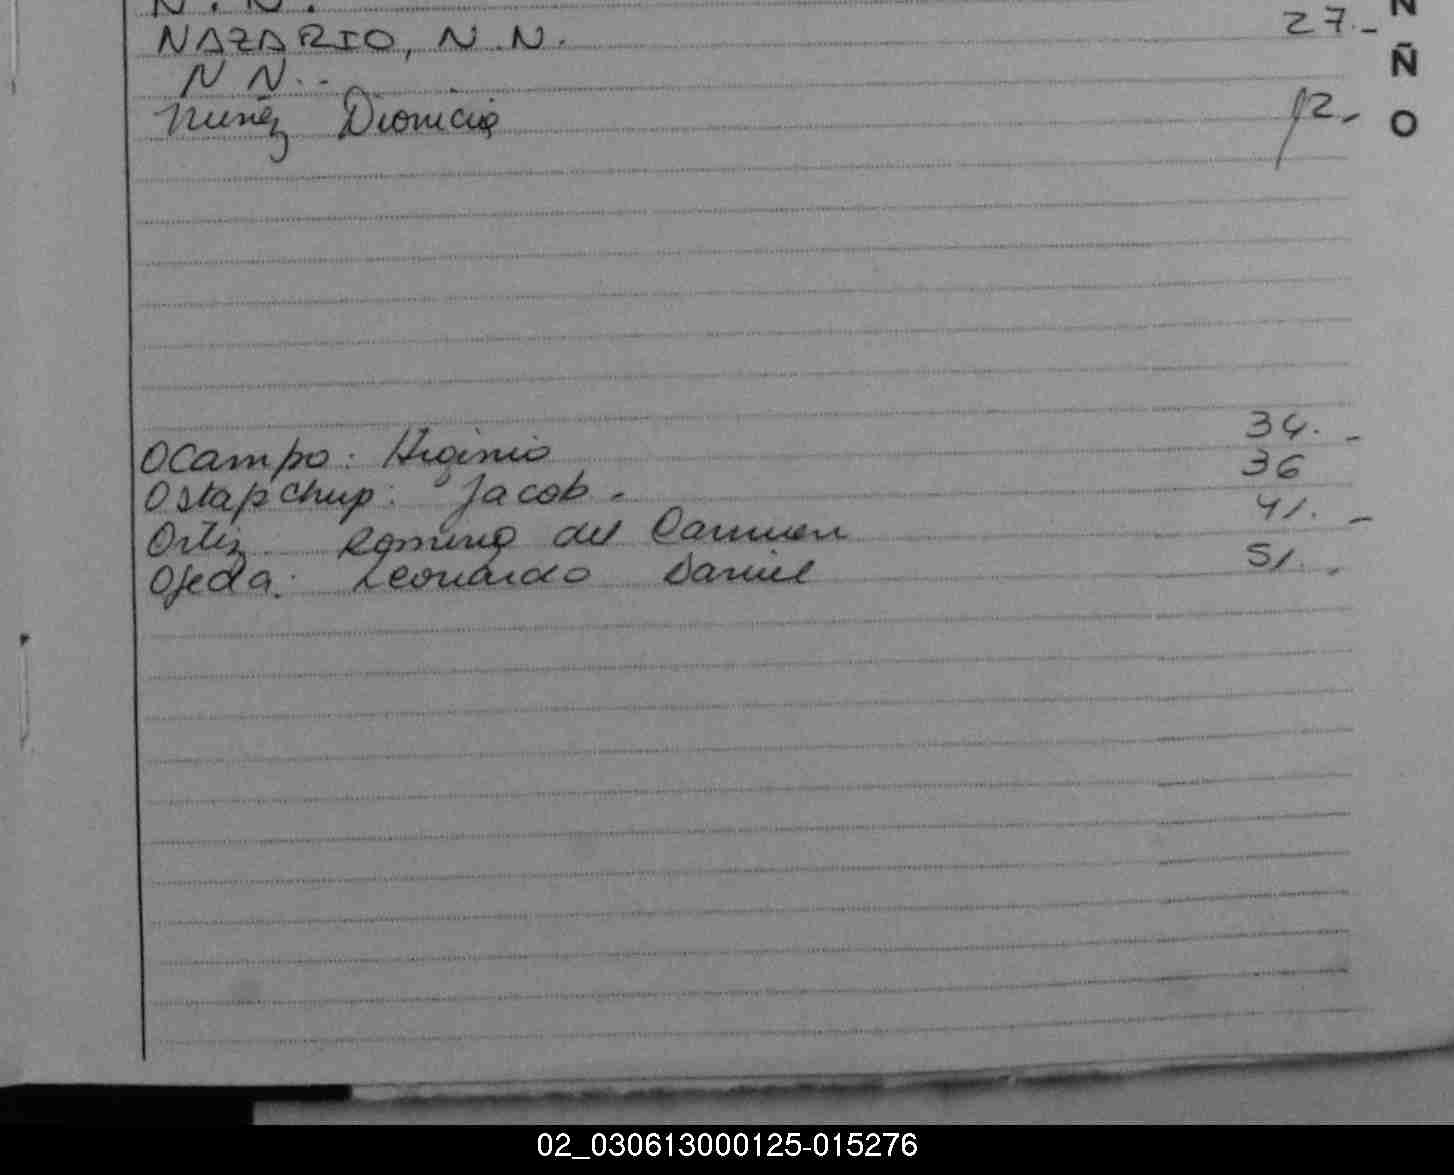 N. N.
NAZARIO, N.N. 27.-
N N..
Nuñez Dionicia 12.-
Ocampo: Higinio 34.-
Ostapchup: Jacob. 36
Ortiz Romina del Carmen 41.-
Ojeda: Leonardo Daniel 51.-
N
Ñ
O
02_030613000125-015276